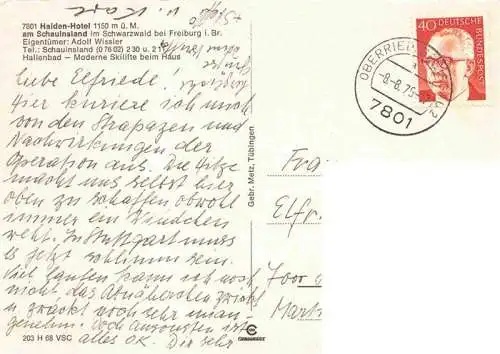 7801 Halden-Hotel 1150 m ü. M.
am Schauinsland im Schwarzwald bei Freiburg i. Br.
Eigentümer: Adolf Wissler
Tel.: Schauinsland (0 76 02) 2 30 u. 211
Hallenbad – Moderne Skilifte beim Haus
Liebe Elfriede!
Hier kuriere ich mich
von den Strapazen und
Nachwirkungen der
Operation aus. Die Hitze
macht uns selbst hier
oben zu schaffen obwohl
immer ein Windchen
weht. In Stuttgart muss
es jetzt schlimm sein.
Viel laufen kann ich noch
nicht das Abnähen zwickt
u zwackt noch sehr unan-
genehm. Doch ansonsten ist
alles OK. Die sehr
203 H 68 VSC
Gebr. Metz, Tübingen
40 DEUTSCHE
BUNDESPOST
-8.-8.75
7801
Fra
Elfr.